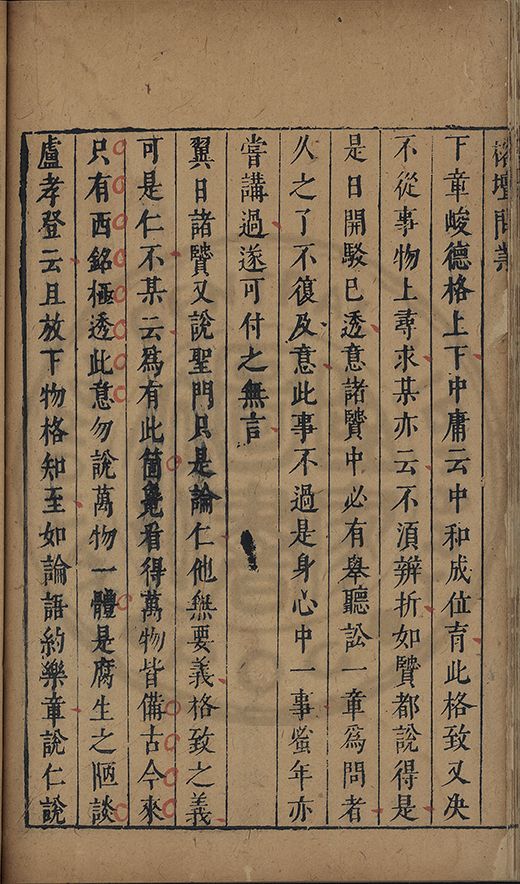 榕壇問業
下章峻德格上下中庸云中和成位育此格致又决
不從事物上尋求某亦云不須辨折如贒都說得是
是日開駁已透意諸贒中必有舉聽訟一章爲問者
久之了不復及意此事不過是身心中一事蚤年亦
嘗講過遂可付之無言
翼日諸贒又說聖門只是論仁他無要義格致之義
可是仁不某云爲有此箇覺看得萬物皆備古今來
只有西銘極透此意勿說萬物一體是腐生之陋談
盧孝登云且放下物格知至如論語約樂章說仁說